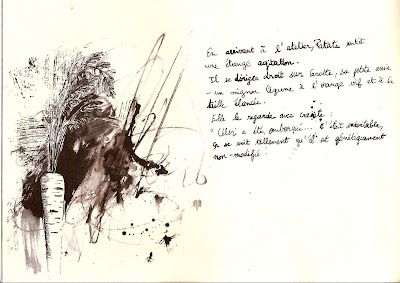 En arrivant à l'atelier, Patate sentit
une étrange agitation.
Il se dirigea droit sur Carotte, sa petite amie
- un mignon légume à l'orange vif et à la
taille élancée.
Elle le regarda avec crainte :
" Céleri a été embarqué... C'était inévitable,
ça se voit tellement qu'il est génétiquement
non-modifié !